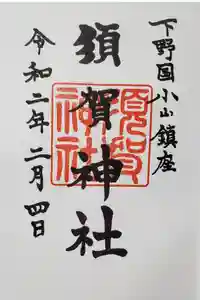 下野国小山鎮座
須賀神社
令和二年二月四日
須賀
神社